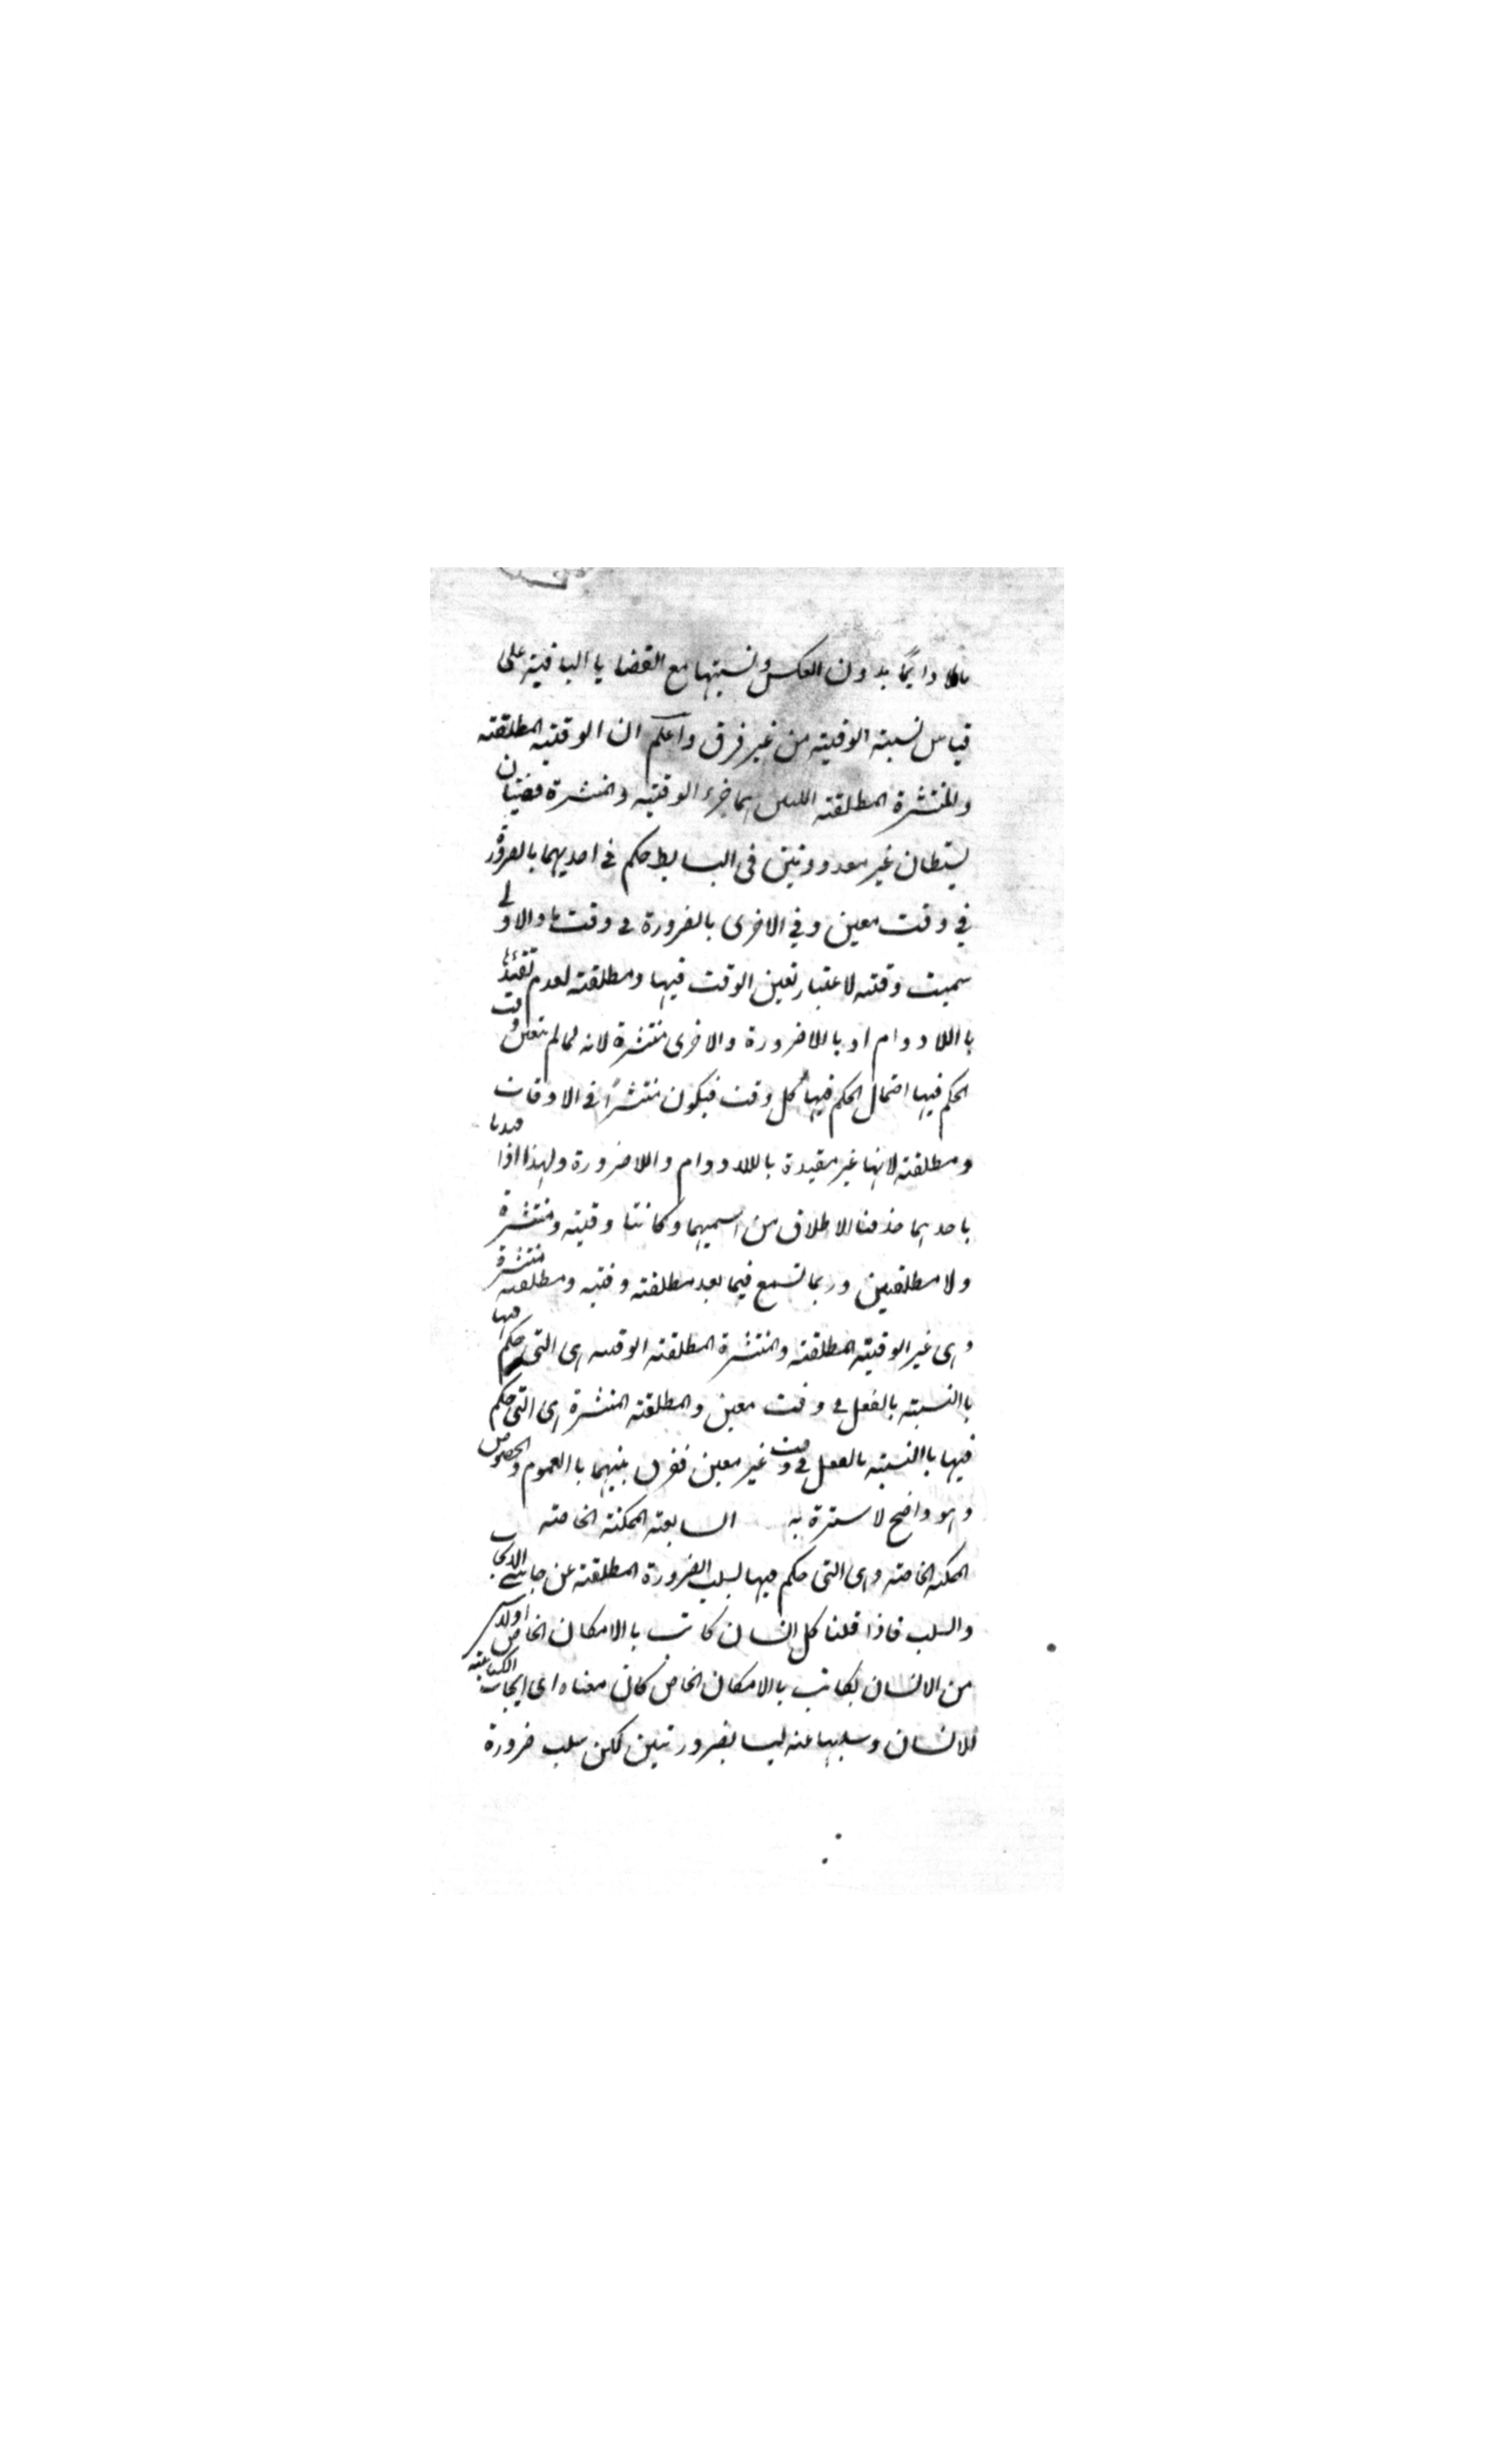 ما لا دايمًا بدون العكس ونسبتها مع القضايا الباقية على
قياس نسبة الوقتية من غير فرق واعلم ان الوقتية المطلقة
والمنتشرة المطلقة اللتين هما جزء الوقتية والمنتشرة قضيتان
بسيطتان غير معدودتين فى البسايط حكم فى احديهما بالضرورة
في وقت معين وفي الاخرى بالضرورة فى وقت ما والاولى
سميت وقتية لاعتبار تعين الوقت فيها ومطلقة لعدم تقيدها
با اللا دوام او با اللا ضرورة والاخرى منتشرة لانه لما لم يتعين وقت
الحكم فيها احتمل الحكم فيها كل وقت فيكون منتشرًا فى الاوقات
ومطلقة لانها غير مقيدة باللادوام واللا ضرورة ولهذا اذا قيدتا
باحديهما حذفنا الاطلاق من اسميهما وكانتا وقتية ومنتشرة
ولا مطلقتين وربما تسمع فيما بعد مطلقة وقتية ومطلقة منتشرة
وهى غير الوقتية المطلقة والمنتشرة المطلقة الوقتية هى التى حكم فيها
با النسبة بالفعل فى وقت معين والمطلقة المنتشرة هى التى حكم
فيها با النسبة بالفعل فى وقت غير معين ففرق بينهما با العموم والخصوص
وهو واضح لا سترة به السابعة الممكنة الخاصة
الممكنة الخاصة وهى التى حكم فيها بسلب الضرورة المطلقة عن جانبى الايجاب
والسلب فاذا قلنا كل انسان كاتب با الامكان الخاص او لا شى
من الانسان بكاتب با الامكان الخاص كان معناه اى ايجاب الكتابة
للانسان وسلبها عنه ليسا بضرورتين لكن سلب ضرورة